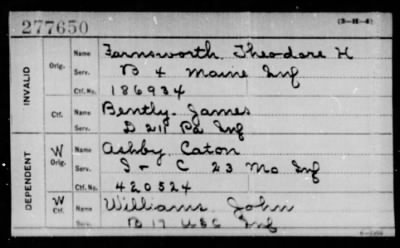 277650 (3-H-4)
INVALID
Orig. Name Farnsworth, Theodore H
Serv. B 4 Maine Inf
Ctf. No. 186934
Ctf. Name Bently, James
Serv. D 211 Pa Inf
DEPENDENT
W Orig. Name Ashby, Caton
Serv. I + C 23 Mo Inf
Ctf. No. 420524
W Ctf. Name Williams John
Serv. B 17 USC Inf